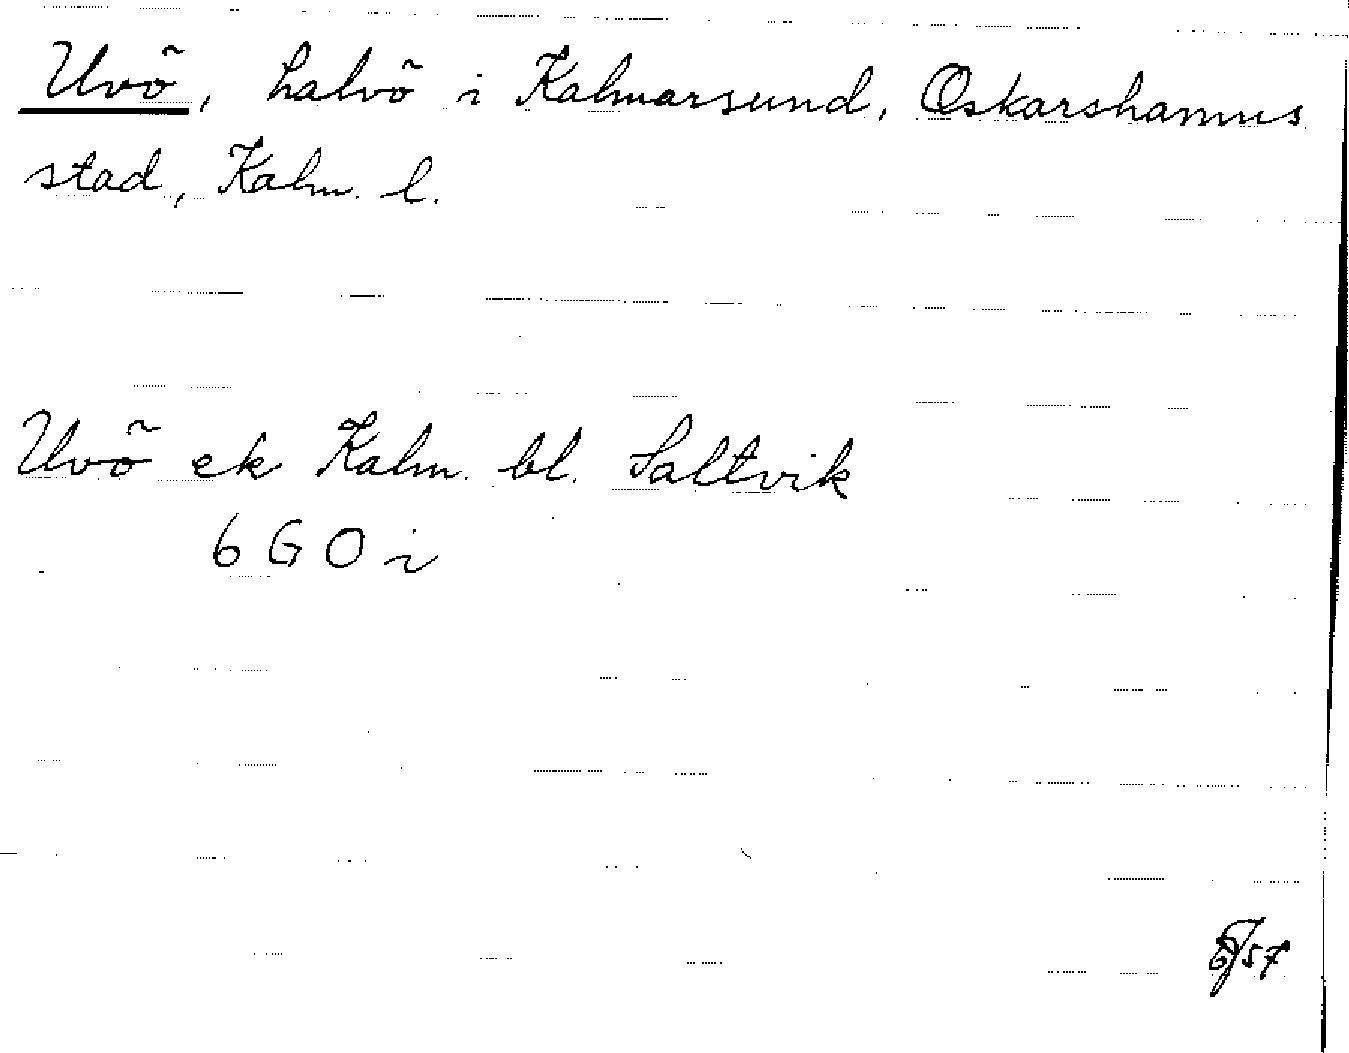 Uvö, halvö i Kalmarsund, Oskarshamns
stad, Kalm. l.
Uvö ek Kalm. bl. Saltvik
6 G O i